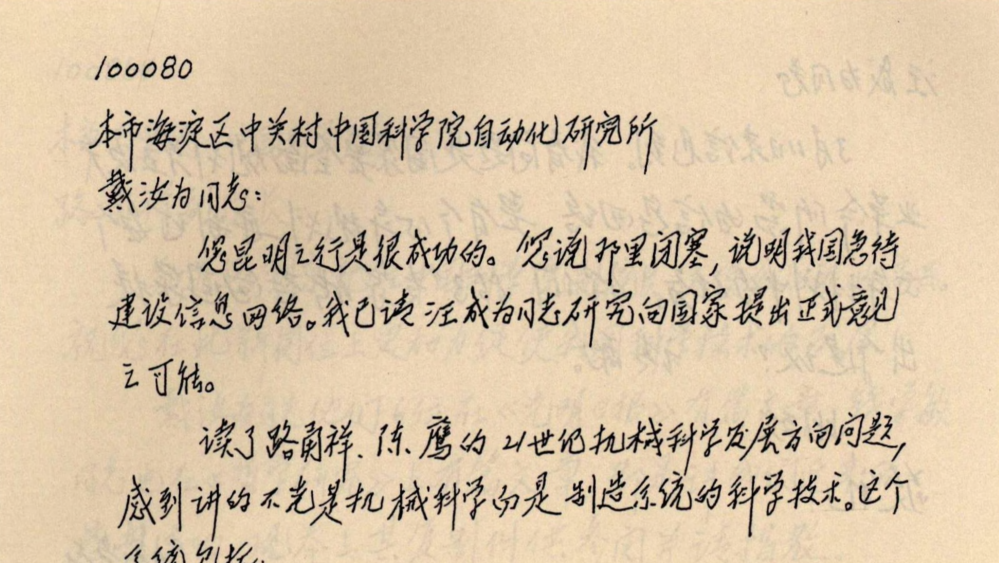 100080
本市海淀区中关村中国科学院自动化研究所
戴汝为同志:
您昆明之行是很成功的。您说那里闭塞,说明我国急待
建设信息网络。我已请汪成为同志研究向国家提出正式意见
之可能。
读了路甬祥、陈鹰的21世纪机械科学发展方向问题,
感到讲的不光是机械科学而是制造系统的科学技术。这个
系统包括: